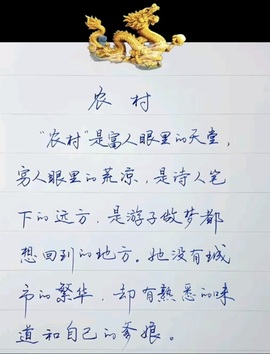 农村
“农村”是富人眼里的天堂，
穷人眼里的荒凉，是诗人笔
下的远方，是游子做梦都
想回到的地方。她没有城
市的繁华，却有熟悉的味
道和自己的爹娘。